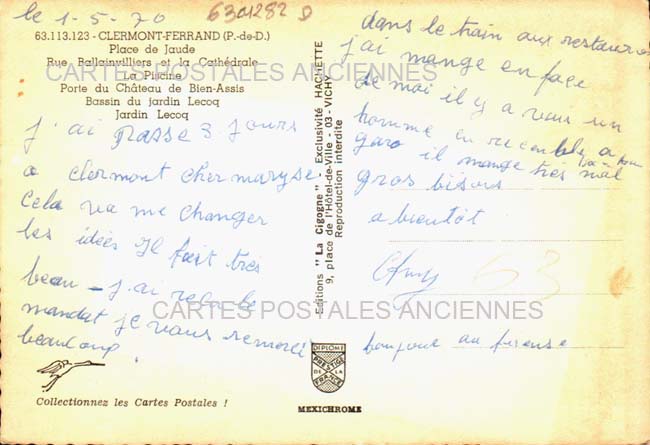 le 1-5-70
6301282 D
63.113.123 - CLERMONT-FERRAND (P.-de-D.)
Place de Jaude
Rue Ballainvilliers et la Cathédrale
La Piscine
Porte du Château de Bien-Assis
Bassin du jardin Lecoq
Jardin Lecoq
CARTES POSTALES ANCIENNES
j'ai passe 3 jours
a clermont cher maryse
Cela va me changer
les idées Il fait tres
beau - j'ai reçu le
mandat je vous remerci
beaucoup
Collectionnez les Cartes Postales !
Editions "La Cigogne" - Exclusivité HACHETTE
9, place de l'Hôtel-de-Ville - 03 - VICHY
Reproduction interdite
dans le train aux restauran
j'ai mange en face
de moi il y a vais un
homme en
garo il mange tres mal
gros bisous
a bientôt
63
CARTES POSTALES ANCIENNES
bonjour au
DIPLOME
PRESTIGE
DE LA
FRANCE
MEXICHROME